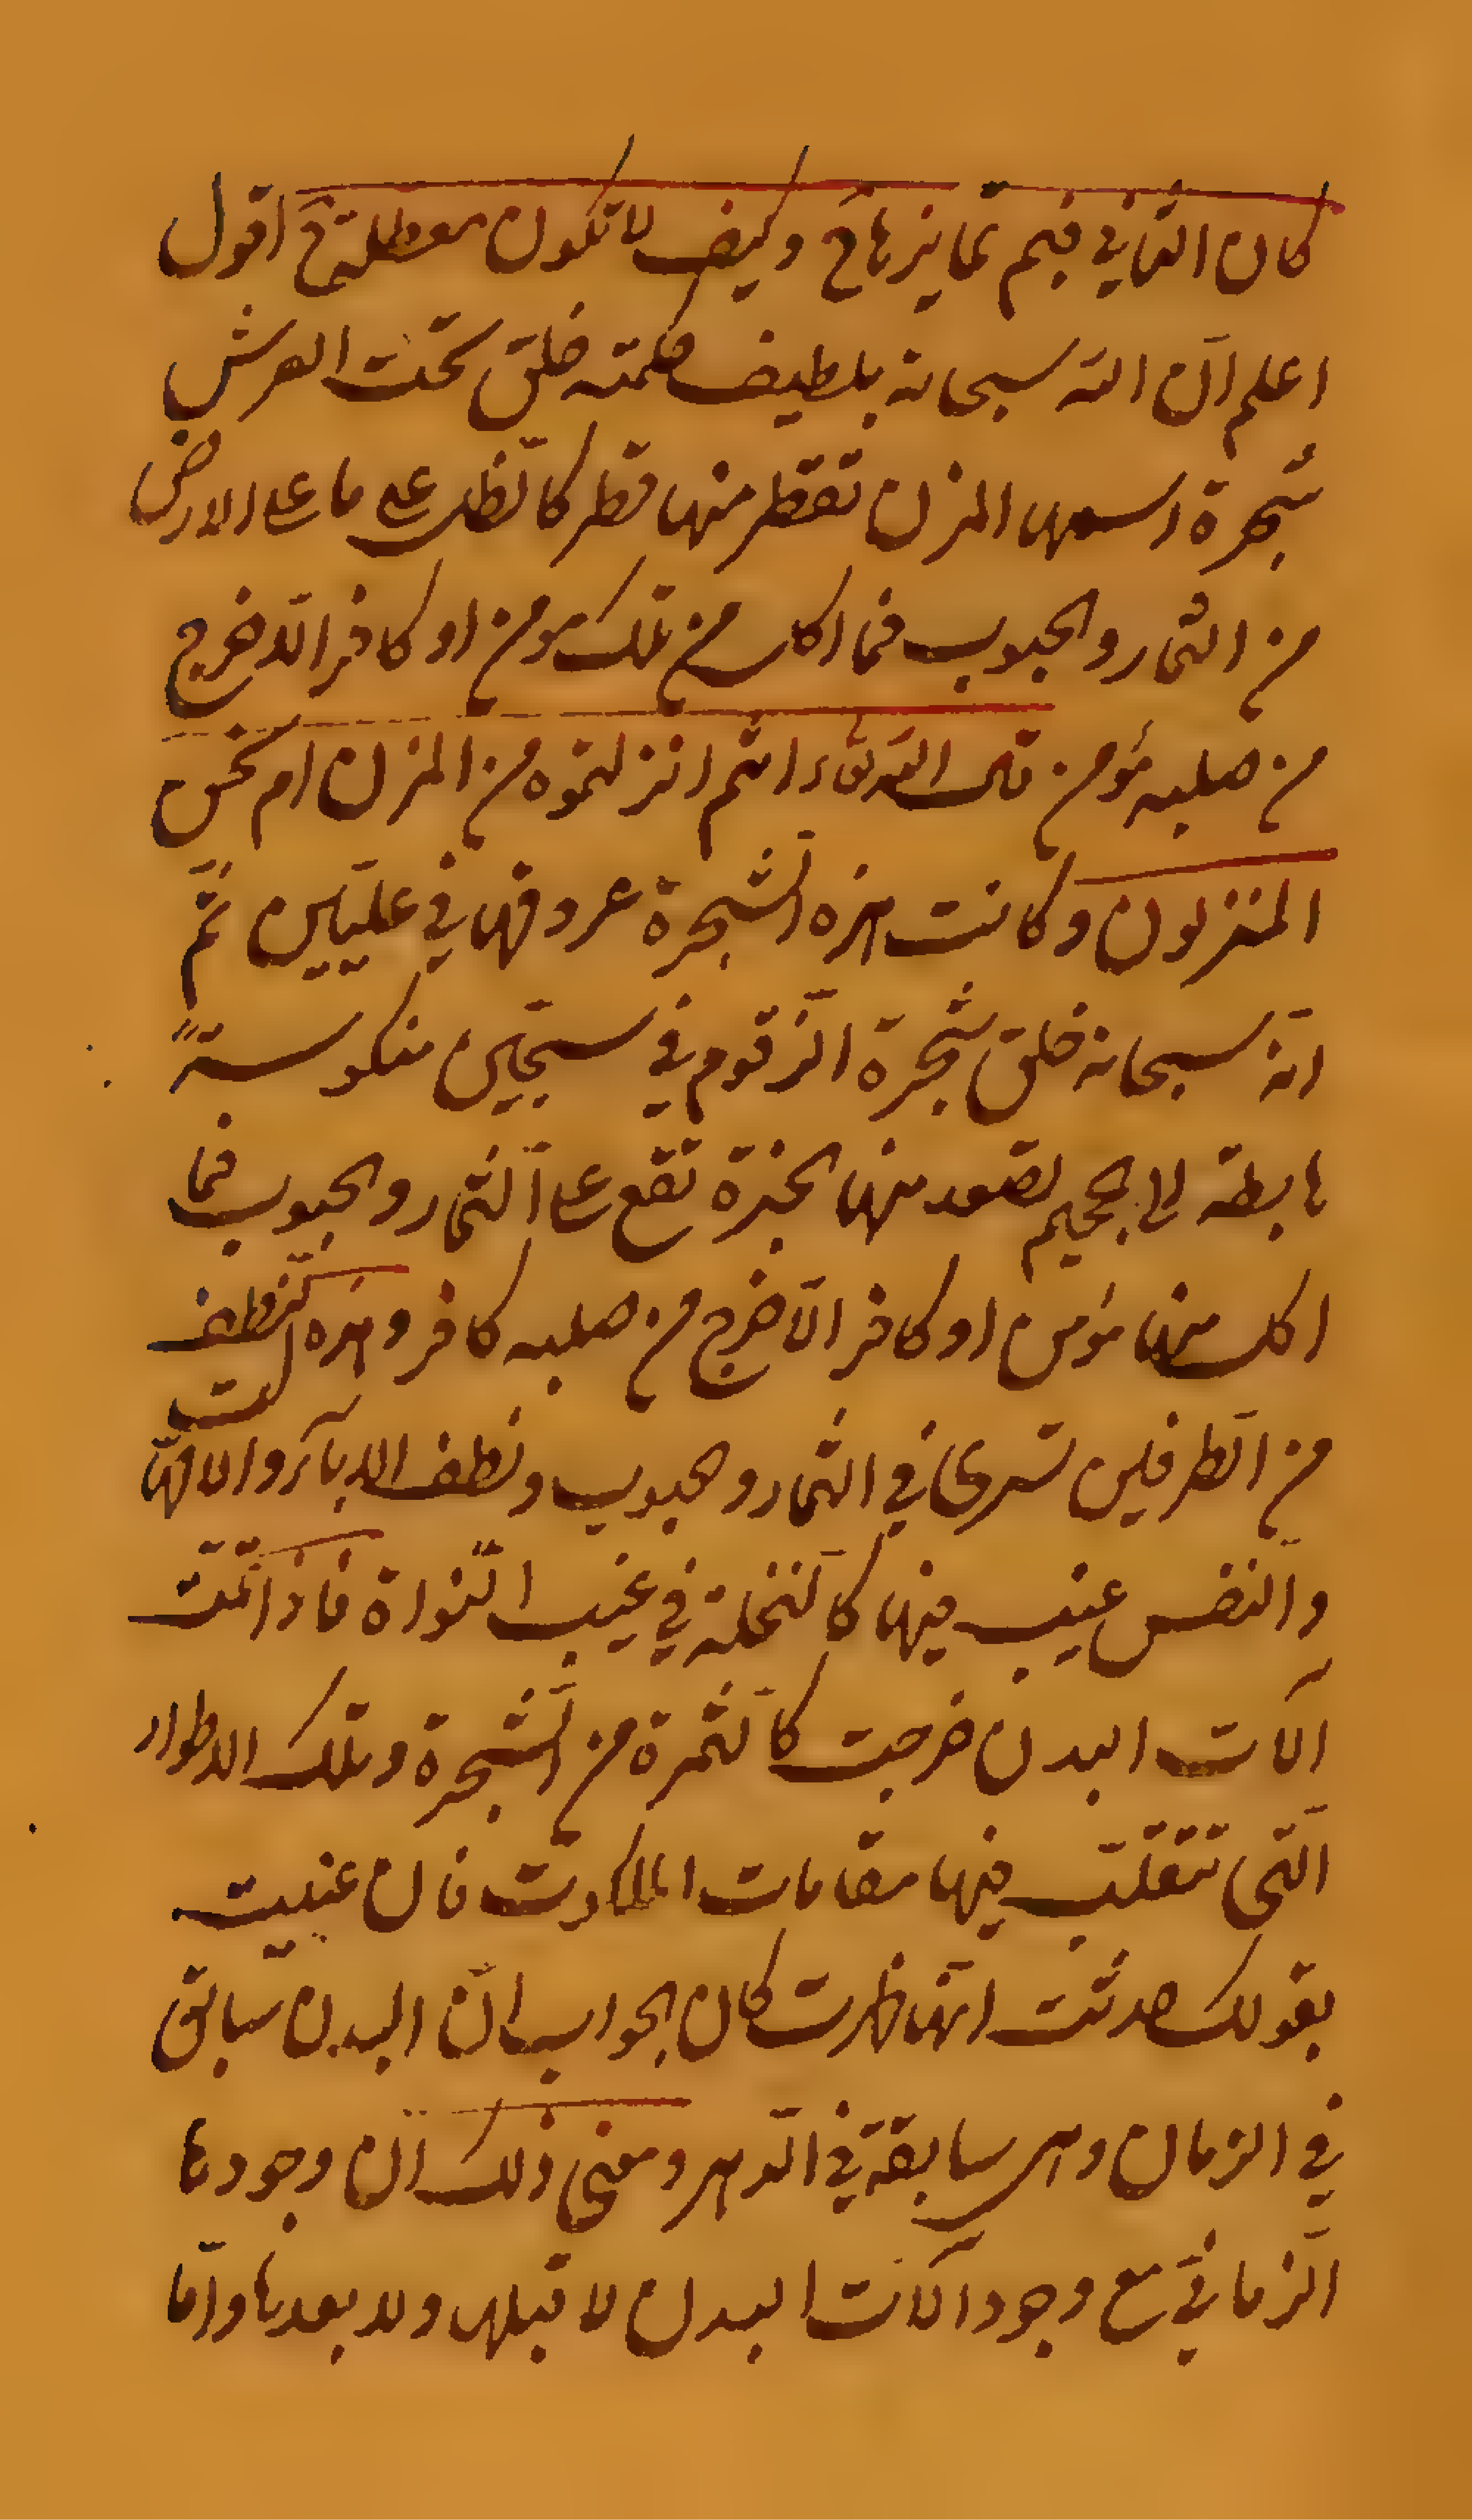 كان الثاني فبم تمايزها ح وكيف لا تكون معطلة ح اقول
اعلم انّ اللّه سبحانه بلطيف حكمته خلق تحت العرش
شجرة اسمها المزن تقطر منها قطر كالطّل على ما على الارض
من الثمار والحبوب فما اكل من تلك مومن او كافر الّا خرج
من صلبه مؤمن قال اللّه تعٰ ءانتم انزلتموه من المزن ام نحن
المنزلون وكانت هذه الشّجرة عروقها في عليّين ثمّ
انّه سبحانه خلق شجرة الزّقوم في سجّين منكوسةً
هابطة الى الجحيم تصعد منها ابخرة تقع على الثّمار والحبوب فما
اكل منها مؤمن او كافر الّا خرج من صلبه كافر وهذه النّطف الّت
من الطّرفين تسرى في الثمار والحبوب ونطف الاباۤء والامّهات
والنّفس غيب فيها كالنّخلة في غيب النّواة فاذا تمّت
آلات البدن خرجت كالثّمرة من الشّجرة وتلك الاطوار
الّتى تتقلّب فيها مقامات الملكوت فان عنيت
بقولك حدثت انّها ظهرت كان الجواب انّ البدن سابق
في الزمان وهي سابقة في الدّهر ومعنى ذلك انّ وجودها
الزّمانيّ مع وجود آلات البدن لا قبلها ولا بعدها وامّا